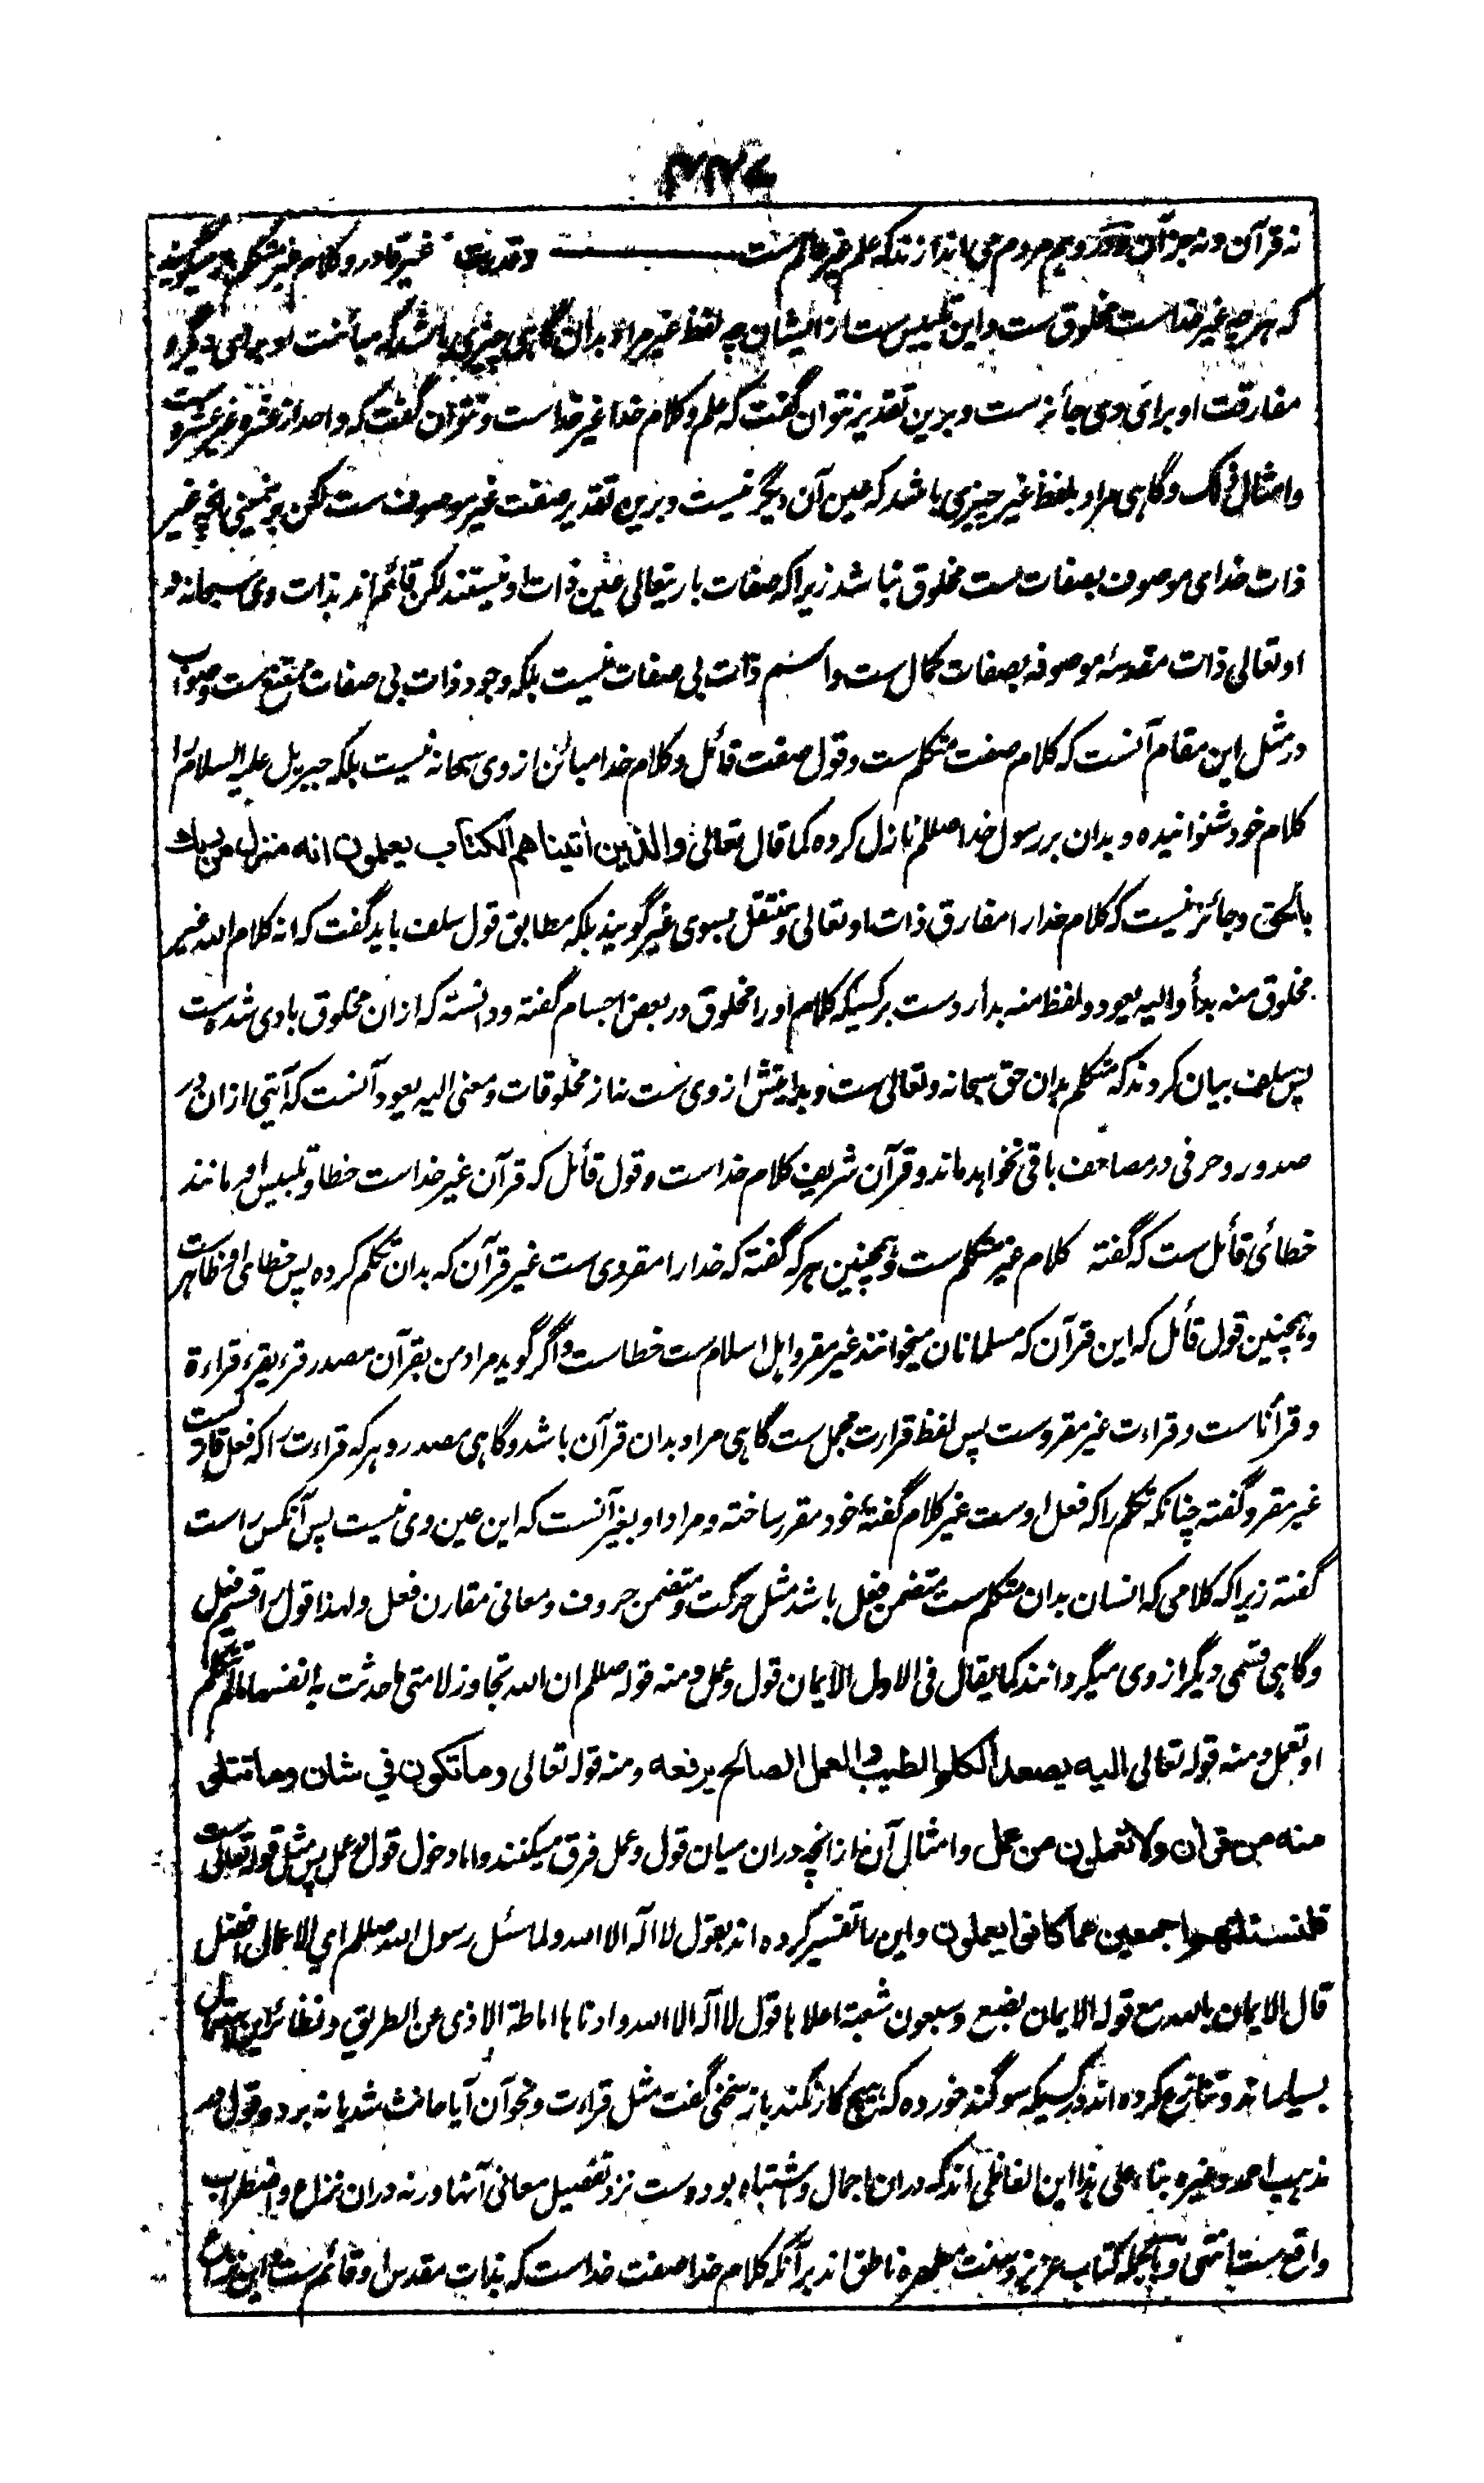 نه قرآن ونه جز آن و وهم مردم می اندازند که علم غیر عالم ست وقدرت غیر قادر وکلام غیر متکلم ومیگویند
که هرچه غیر خداست مخلوق ست واین تلبیس ست از ایشان چه لفظ غیر مراد بدان گاهی چیزی باشد که مباینت او برای دیگر و
مفارقت او برای وی جائزست وبرین تقدیر نتوان گفت که علم وکلام خدا غیر خداست ونتوان گفت که واحد از عشره غیر عشره است
وامثال ذلک وگاهی مراد بلفظ غیر چیزی باشد که عین آن دیگر نیست وبرین تقدیر صفت غیر موصوف ست لکن بر هرچه غیر
ذات خدای موصوف بصفات ست مخلوق نباشد زیراکه صفات باریتعالی عین ذات او نیستند لکن قائم اند بذات وی سبحانه و
او تعالی ذات مقدسهٔ موصوفه بصفات کمال ست واسم ذات بی صفات نیست بلکه وجود ذات بی صفات ممتنع ست وصواب
در مثل این مقام آنست که کلام صفت متکلم ست وقول صفت قائل وکلام خدا مبائن از وی سبحانه نیست بلکه جبریل علیه السلام را
کلام خود شنوانیده وبدان بر رسول خدا صللم نازل کرده کما قال تعالی والذین اٰتیناهم الکتاب یعلمون انه منزل من ربك
بالحق وجائز نیست که کلام خدا را مفارق ذات او تعالی ومنتقل بسوی غیر گویند بلکه مطابق قول سلف باید گفت که انه کلام الله غیر
مخلوق منه بدأ والیه یعود ولفظ منه بدأ ردست بر کسیکه کلام او را مخلوق در بعض اجسام گفته ودانسته که ازان مخلوق بادی شده ست
پس سلف بیان کردند که متکلم بدان حق سبحانه وتعالی ست وبدایتش از وی ست نه از مخلوقات ومعنی الیه یعود آنست که آیتی ازان در
صدور وحرفی در مصاحف باقی نخواهد ماند وقرآن شریف کلام خداست وقول قائل که قرآن غیر خداست خطا وتلبیس او مانند
خطائی قائل ست که گفته کلام غیر متکلم ست وهمچنین هر که گفته که خدا را مقروی ست غیر قرآن که بدان تکلم کرده پس خطای او ظاهر ست
وهمچنین قول قائل که این قرآن که مسلمانان میخوانند غیر مقرو اهل اسلام ست خطاست واگر گوید مراد من بقرآن مصدر قرء یقرء قراءة
وقرآنا ست وقراءت غیر مقروست پس لفظ قرارت مجمل ست گاهی مراد بدان قرآن باشد وگاهی مصدر وهر که قراءت را که فعل قاریست
غیر مقرو گفته چنانکه تکلم را که فعل اوست غیر کلام گفتهٔ خود مقرر ساخته ومراد او بغیر آنست که این عین وی نیست پس آنکس راست
گفته زیراکه کلامی که انسان بدان متکلم ست متضمن فعل باشد مثل حرکت ومتضمن حروف ومعانی مقارن فعل ولهذا قول را قسیم فعل
وگاهی قسمی دیگر از وی میگردانند کما یقال فی الاول الایمان قول وعمل ومنه قوله صللم ان الله تجاوز لامتی ما حدثت به انفسها ما لم تتکلم
او تعمل ومنه قوله تعالی الیه یصعد الکلم الطیب والعمل الصالح یرفعه ومنه قوله تعالی وما تکون فی شان وما تتلو
منه من قرآن ولا تعملون من عمل وامثال آن از آنچه دران میان قول وعمل فرق میکنند واما دخول قول در عمل پس مثل قوله تعالی ست
فلنسئلنهم اجمعین عما کانوا یعملون واین را تفسیر کرده اند بقول لا آله الا الله ولما سئل رسول الله صللم ای الاعمال افضل
قال الایمان بالله مع قوله الایمان بضع وسبعون شعبة اعلاها قول لا آله الا الله وادناها اماطة الاذی عن الطریق ونظائر این
بسیارند وتنازع کرده اند در کسیکه سوگند خورده که هیچ کار نکند باز سخنی گفت مثل قراءت ونحو آن آیا حانث شد یا نه بر دو قول در
مذهب احمد وغیره بناء علی هذا این الفاظی اند که دران اجمال واشتباه بوده ست نزد تفصیل معانی آنها ورنه دران نزاع واضطراب
واقع ست انتهی وبالجمله کتاب عزیز وسنت مطهره ناطق اند بر آنکه کلام خدا صفت خداست که بذات مقدس او قائم ست